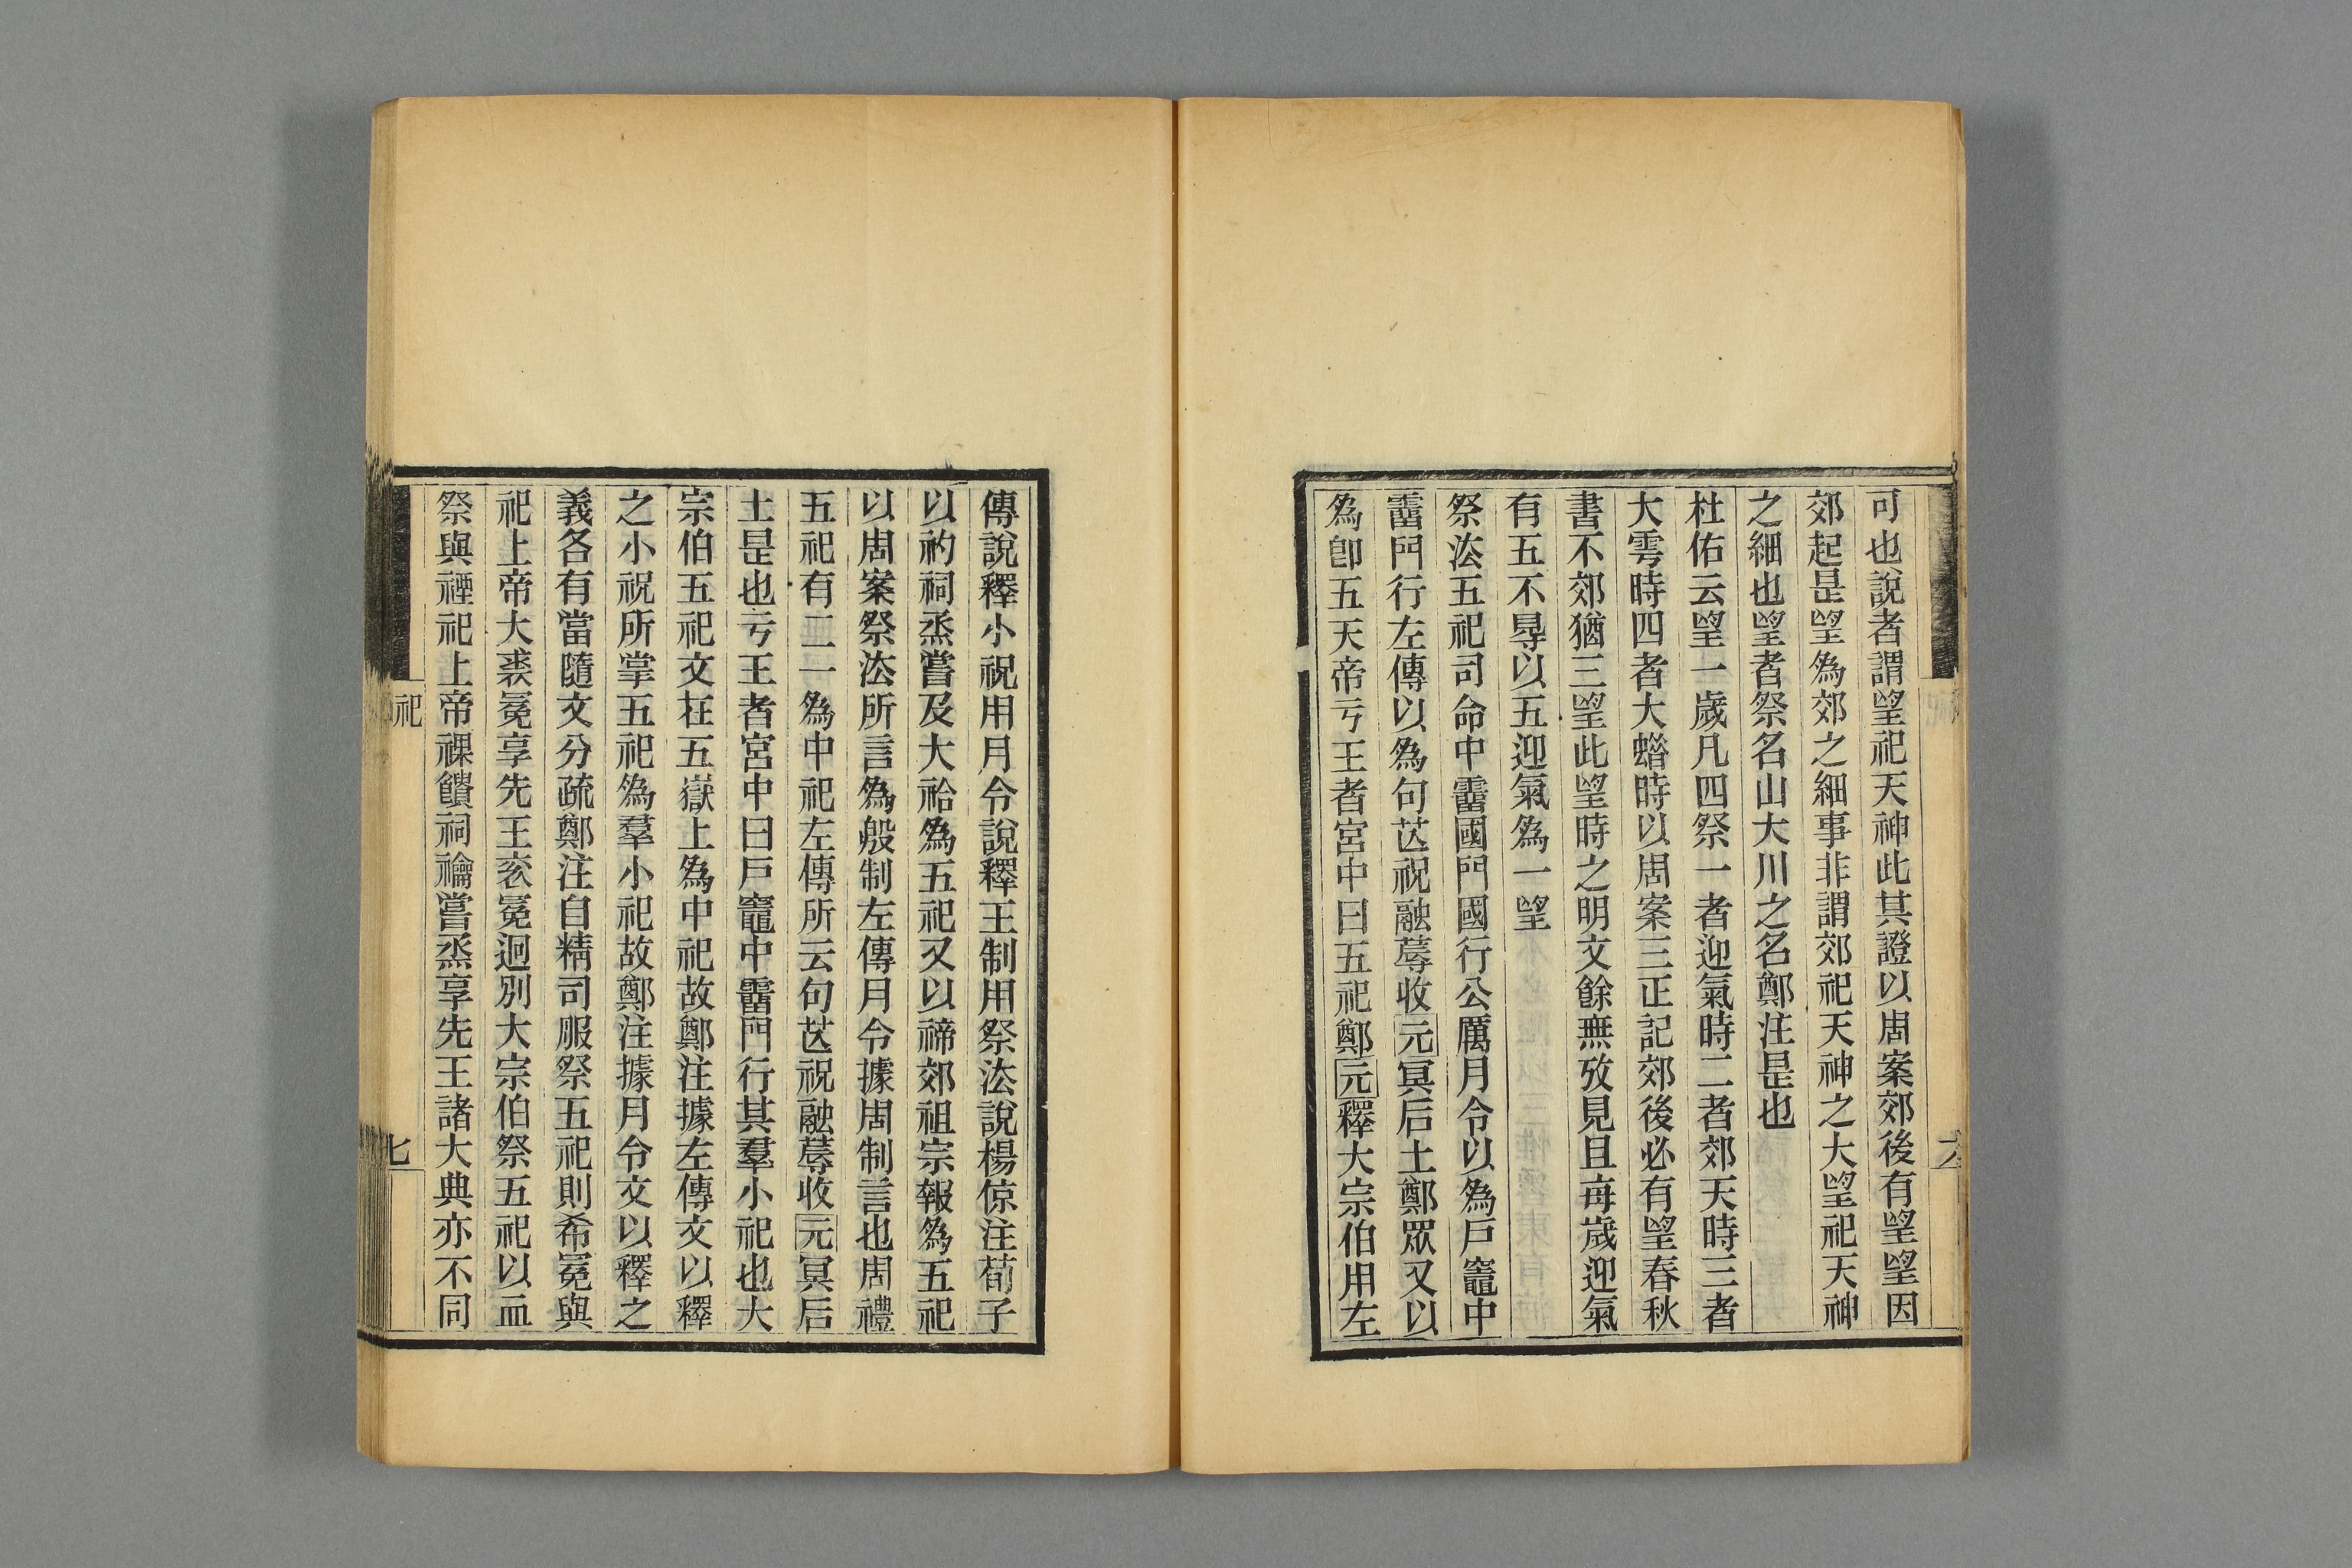 可也說者謂朢祀天神此其證以周案郊後有朢朢因
郊起昰朢為郊之細事非謂郊祀天神之大朢祀天神
之細也朢者祭名山大川之名鄭注昰也
杜佑云朢一歲凡四祭一者迎氣時二者郊天時三者
大雩時四者大蜡時以周案三正記郊後必有朢春秋
書不郊猶三朢此朢時之明文餘無攷見且每歲迎氣
有五不㝵以五迎氣為一朢
祭法五祀司命中霤國門國行公厲月令以為戶竈中
霤門行左傳以為句芒祝融蓐收元冥后土鄭眾又以
為卽五天帝亏王者宮中曰五祀鄭元釋大宗伯用左
傳說釋小祝用月令說釋王制用祭法說楊倞注荀子
以礿祠烝嘗及大祫為五祀又以禘郊祖宗報為五祀
以周案祭法所言為殷制左傳月令據周制言也周禮
五祀有二一為中祀左傳所云句芒祝融蓐收元冥后
土昰也亏王者宮中曰戶竈中霤門行其羣小祀也大
宗伯五祀文在五嶽上為中祀故鄭注據左傳文以釋
之小祝所掌五祀為羣小祀故鄭注據月令文以釋之
義各有當隨文分疏鄭注自精司服祭五祀則希冕與
祀上帝大裘冕享先王袞冕迥別大宗伯祭五祀以血
祭與禋祀上帝祼饋祠禴嘗烝享先王諸大典亦不同
祀
七